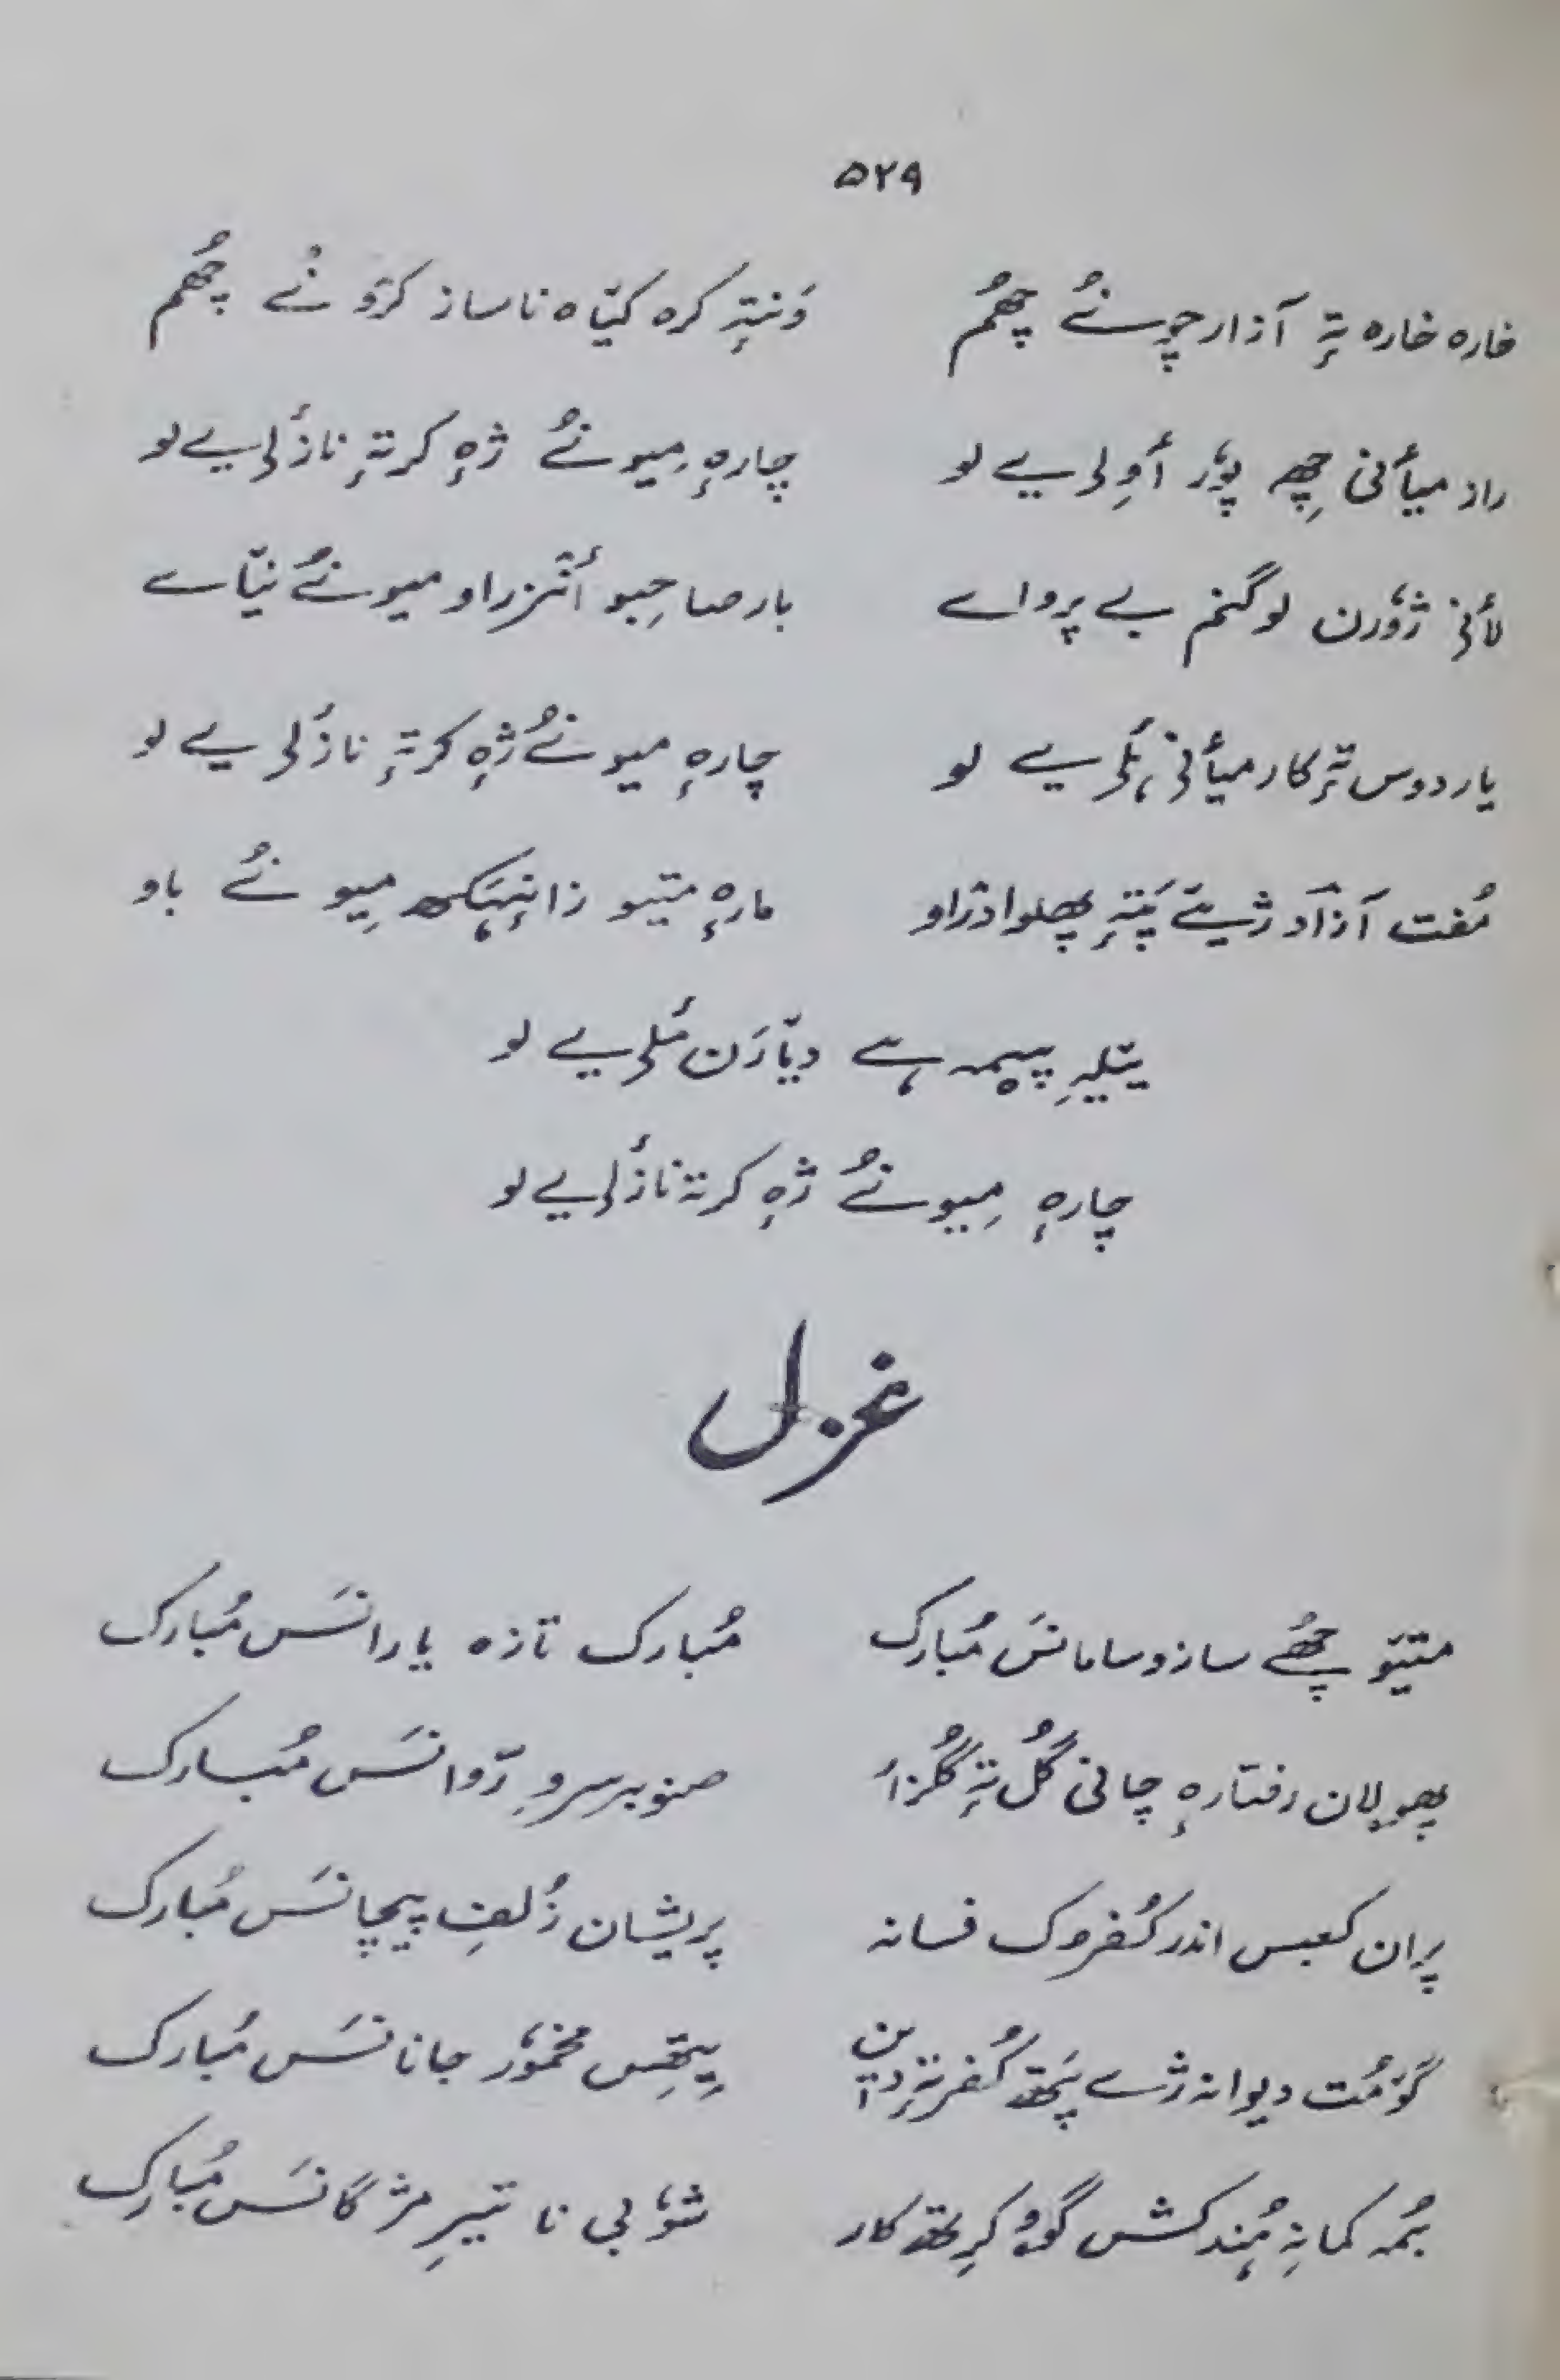 ۵۲۹
خارہ خارہ تہٕ آزار چونُے چھُم وَنتہٕ کرہ کیّاہ ناساز کرَو نُے چھُم
راز میأنی چھِ پوٗر أولی یے لو چارہٕ میونُے ژہٕ کرتہٕ نازٔلی یے لو
لأنی ژوٗرن لوگنم بے پرواے بار صاحِبو أنٛزراو میونُے نیّاے
یار دوس تہٕ کار میأنی ہُلی یے لو چارہٕ میونُے ژہٕ کرتہٕ نازٔلی یے لو
مُفت آزاد ژیےَ پَتہٕ پھلوا دزاو مارہٕ متیو زانہِہَکھ میونُے باو
یَتلہِ پیمہ ہے دیّارَن مُلی یے لو
چارہٕ میونُے ژہٕ کرتہٕ نازٔلی یے لو
غزل
متیَو چھُے سازو سامانسَ مُبارک مُبارک تازہ یارانسَس مُبارک
پھولان رفتارہٕ چانی گُل تہٕ گُلزار صنوبر سروِ رَوانسَس مُبارک
پران کعبس اندر کُفروک فسانہ پریشان زُلفِ پیچانسَس مُبارک
گوٚمُت دیوانہ ژے پَتھ کُفر تہٕ دین پیٚتھِس مخموٗر جانانسَس مُبارک
بُمہ کمانہِ ہُند کشش گوٚو کرِتھ کار شوٗبی نا تیرِ مژگانسَس مُبارک